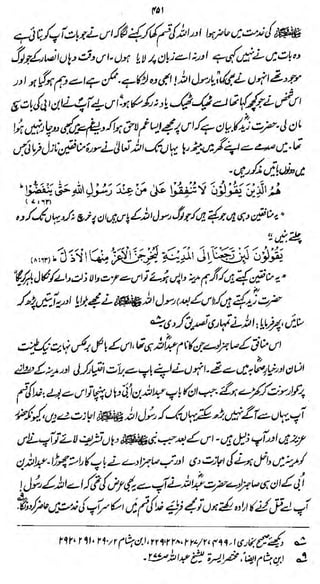 ۴۵۱
ﷺ کی خدمت میں حاضر ہوا اور اللہ کی قسم کھا کر کہنے لگا کہ اس نے جو بات آپ کو بتائی ہے
وہ بات میں نے نہیں کہی ہے اور نہ اسے زبان پر لایا ہوں۔ اس وقت وہاں انصار کے جو لوگ
موجود تھے انہوں نے بھی کہا: یا رسول اللہ! ابھی وہ لڑکا ہے۔ ممکن ہے اسے وہم ہو گیا ہو اور
اس شخص نے جو کچھ کہا تھا اسے ٹھیک ٹھیک یاد نہ رکھ سکا ہو۔ اس لیے آپ نے ابن اُبی کی بات سچ
مان لی۔ حضرت زیدؓ کا بیان ہے کہ اس پر مجھے ایسا غم لاحق ہوا کہ ویسے غم سے میں کبھی دوچار نہیں ہوا
تھا۔ میں صدمے سے اپنے گھر میں بیٹھ رہا یہاں تک کہ اللہ تعالیٰ نے سورۂ منافقین نازل فرمائی جس
میں دونوں باتیں مذکور ہیں۔
هُمُ الَّذِيْنَ يَقُوْلُوْنَ لَا تُنْفِقُوْا عَلٰى مَنْ عِنْدَ رَسُوْلِ اللّٰهِ حَتّٰى يَنْفَضُّوْا
(۷:۶۳)
"یہ منافقین وہی ہیں جو کہتے ہیں کہ جو لوگ رسول اللہ کے پاس ہیں ان پر خرچ نہ کرو یہاں تک کہ وہ
چلتے بنیں"
يَقُوْلُوْنَ لَئِنْ رَّجَعْنَا اِلَى الْمَدِيْنَةِ لَيُخْرِجَنَّ الْاَعَزُّ مِنْهَا الْاَذَلَّ (۸:۶۳)
"یہ منافقین کہتے ہیں کہ اگر ہم مدینہ واپس ہوئے تو اس سے عزت والا ذلت والے کو نکال باہر کرے گا"
حضرت زیدؓ کہتے ہیں کہ (اس کے بعد) رسول اللہ ﷺ نے مجھے بلوایا اور یہ آیتیں پڑھ کر
سنائیں، پھر فرمایا: اللہ نے تمہاری تصدیق کر دی ۸؎
اس منافق کے صاحبزادے جن کا نام عبداللہؓ ہی تھا، اس کے بالکل برعکس نہایت نیک طینت
انسان اور خیار صحابہؓ میں سے تھے۔ انہوں نے اپنے باپ سے برأت اختیار کر لی اور مدینہ کے دروازے
پر تلوار سونت کر کھڑے ہو گئے۔ جب ان کا باپ عبداللہ بن اُبی وہاں پہنچا تو اس سے بولے: خدا کی قسم
آپ یہاں سے آگے نہیں بڑھ سکتے یہاں تک کہ رسول اللہ ﷺ اجازت دے دیں، کیونکہ حضورؐ
عزیز ہیں اور آپ ذلیل ہیں۔ اس کے بعد جب نبی ﷺ وہاں تشریف لائے تو آپ نے اس
کو مدینہ میں داخل ہونے کی اجازت دی اور تب صاحبزادے نے باپ کا راستہ چھوڑا۔ عبداللہ بن
اُبی کے ان ہی صاحبزادے حضرت عبداللہؓ نے آپ سے یہ بھی عرض کی تھی کہ اے اللہ کے رسول!
آپ اسے قتل کرنے کا ارادہ رکھتے ہوں تو مجھے فرمائیے خدا کی قسم میں اس کا سر آپ کی خدمت میں حاضر کر دوں گا ۹؎
۸؎ دیکھئے صحیح بخاری ۱/۴۹۹، ۲/۲۲۷، ۲۲۸، ۲۲۹، ابن ہشام ۲/۲۹۰، ۲۹۱، ۲۹۲
۹؎ ابن ہشام ایضاً، مختصر السیرۃ للشیخ عبداللہ ص۲۷۷